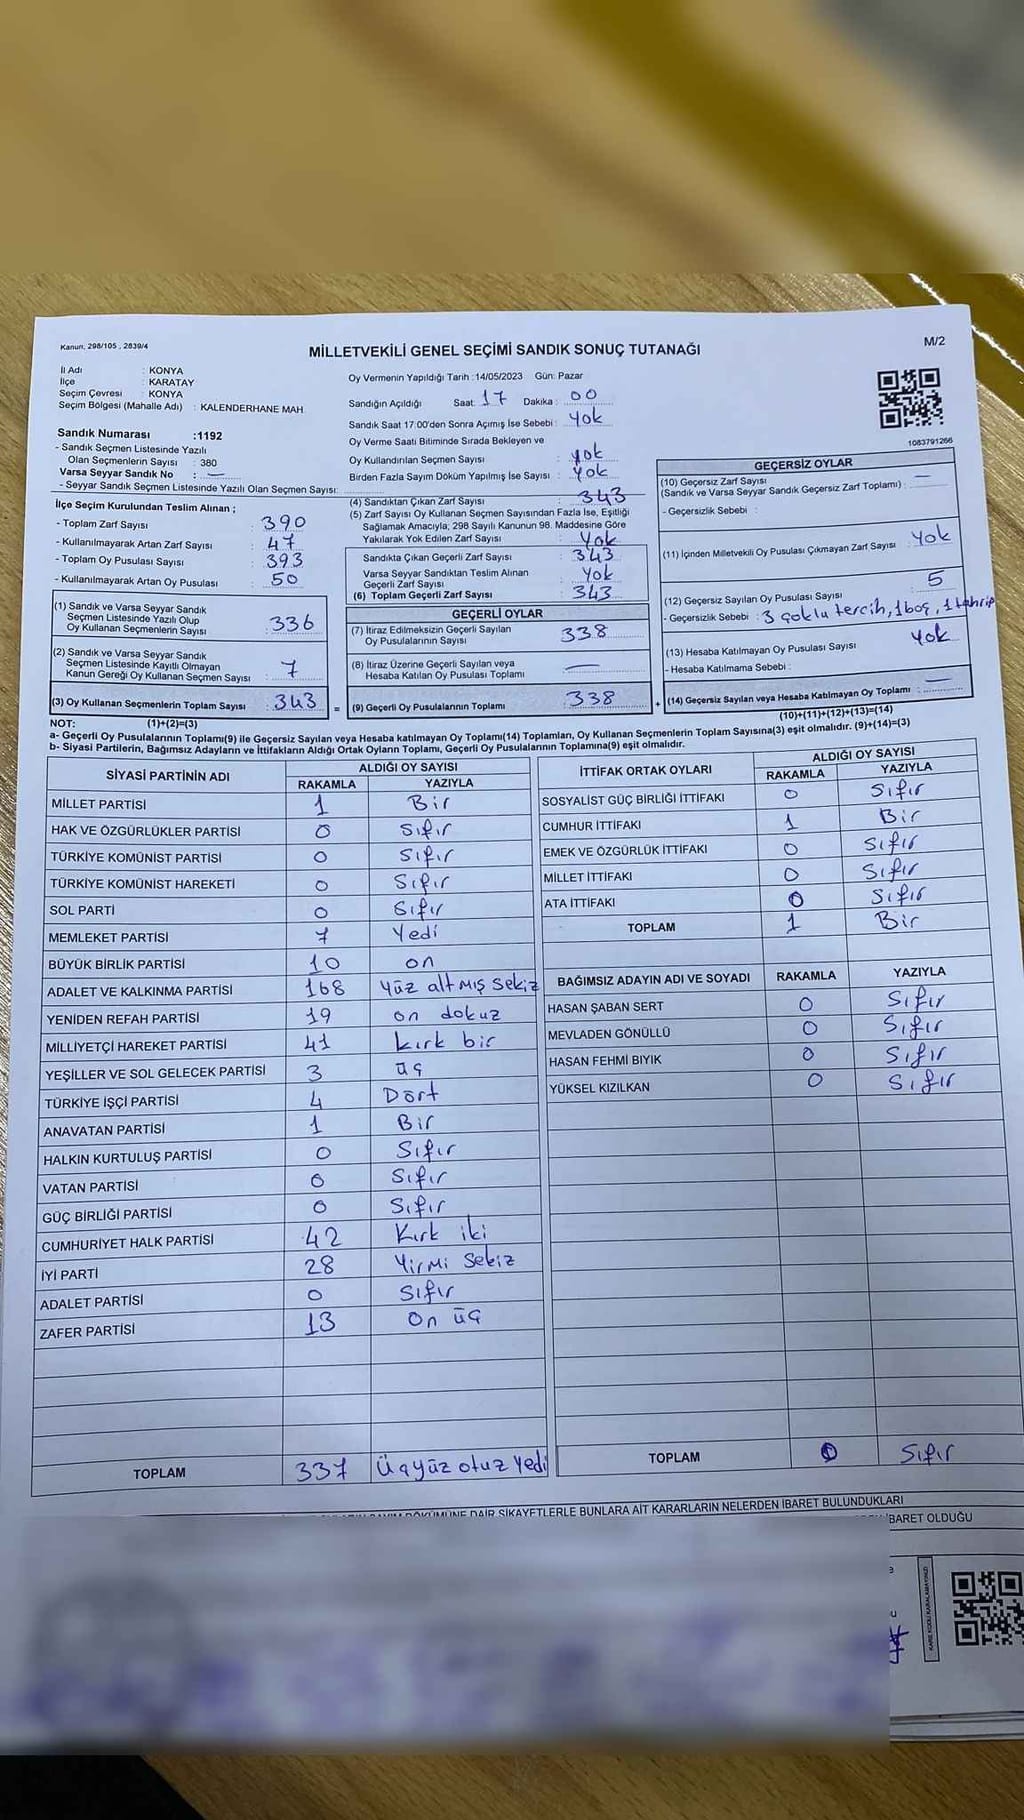 Kanun, 298/105 , 2839/4
MİLLETVEKİLİ GENEL SEÇİMİ SANDIK SONUÇ TUTANAĞI
M/2
İl Adı : KONYA
İlçe : KARATAY
Seçim Çevresi : KONYA
Seçim Bölgesi (Mahalle Adı) : KALENDERHANE MAH.
Sandık Numarası :1192
- Sandık Seçmen Listesinde Yazılı
Olan Seçmenlerin Sayısı : 380
Varsa Seyyar Sandık No : —
- Seyyar Sandık Seçmen Listesinde Yazılı Olan Seçmen Sayısı:
Oy Vermenin Yapıldığı Tarih :14/05/2023 Gün: Pazar
Sandığın Açıldığı Saat: 17 Dakika : 00
Sandık Saat 17:00'den Sonra Açımış İse Sebebi : Yok
Oy Verme Saati Bitiminde Sırada Bekleyen ve
Oy Kullandırılan Seçmen Sayısı : yok
Birden Fazla Sayım Döküm Yapılmış İse Sayısı : Yok
1083791266
İlçe Seçim Kurulundan Teslim Alınan ;
- Toplam Zarf Sayısı : 390
- Kullanılmayarak Artan Zarf Sayısı : 47
- Toplam Oy Pusulası Sayısı : 393
- Kullanılmayarak Artan Oy Pusulası : 50
(1) Sandık ve Varsa Seyyar Sandık
Seçmen Listesinde Yazılı Olup
Oy Kullanan Seçmenlerin Sayısı : 336
(2) Sandık ve Varsa Seyyar Sandık
Seçmen Listesinde Kayıtlı Olmayan
Kanun Gereği Oy Kullanan Seçmen Sayısı : 7
(3) Oy Kullanan Seçmenlerin Toplam Sayısı : 343 =
(1)+(2)=(3)
(4) Sandıktan Çıkan Zarf Sayısı : 343
(5) Zarf Sayısı Oy Kullanan Seçmen Sayısından Fazla İse, Eşitliği
Sağlamak Amacıyla; 298 Sayılı Kanunun 98. Maddesine Göre
Yakılarak Yok Edilen Zarf Sayısı : Yok
Sandıkta Çıkan Geçerli Zarf Sayısı : 343
Varsa Seyyar Sandıktan Teslim Alınan
Geçerli Zarf Sayısı : Yok
(6) Toplam Geçerli Zarf Sayısı : 343
GEÇERLİ OYLAR
(7) İtiraz Edilmeksizin Geçerli Sayılan
Oy Pusulalarının Sayısı : 338
(8) İtiraz Üzerine Geçerli Sayılan veya
Hesaba Katılan Oy Pusulası Toplamı : —
(9) Geçerli Oy Pusulalarının Toplamı : 338 +
GEÇERSİZ OYLAR
(10) Geçersiz Zarf Sayısı
(Sandık ve Varsa Seyyar Sandık Geçersiz Zarf Toplamı) : —
- Geçersizlik Sebebi :
(11) İçinden Milletvekili Oy Pusulası Çıkmayan Zarf Sayısı : Yok
(12) Geçersiz Sayılan Oy Pusulası Sayısı : 5
- Geçersizlik Sebebi : 3 çoklu tercih, 1 boş, 1 tahrip
(13) Hesaba Katılmayan Oy Pusulası Sayısı : Yok
- Hesaba Katılmama Sebebi :
(14) Geçersiz Sayılan veya Hesaba Katılmayan Oy Toplamı : —
(10)+(11)+(12)+(13)=(14)
NOT:
a- Geçerli Oy Pusulalarının Toplamı(9) ile Geçersiz Sayılan veya Hesaba katılmayan Oy Toplamı(14) Toplamları, Oy Kullanan Seçmenlerin Toplam Sayısına(3) eşit olmalıdır. (9)+(14)=(3)
b- Siyasi Partilerin, Bağımsız Adayların ve İttifakların Aldığı Ortak Oyların Toplamı, Geçerli Oy Pusulalarının Toplamına(9) eşit olmalıdır.
SİYASİ PARTİNİN ADI ALDIĞI OY SAYISI
RAKAMLA YAZIYLA
MİLLET PARTİSİ 1 Bir
HAK VE ÖZGÜRLÜKLER PARTİSİ 0 Sıfır
TÜRKİYE KOMÜNİST PARTİSİ 0 Sıfır
TÜRKİYE KOMÜNİST HAREKETİ 0 Sıfır
SOL PARTİ 0 Sıfır
MEMLEKET PARTİSİ 7 Yedi
BÜYÜK BİRLİK PARTİSİ 10 on
ADALET VE KALKINMA PARTİSİ 168 Yüz altmış sekiz
YENİDEN REFAH PARTİSİ 19 on dokuz
MİLLİYETÇİ HAREKET PARTİSİ 41 kırk bir
YEŞİLLER VE SOL GELECEK PARTİSİ 3 üç
TÜRKİYE İŞÇİ PARTİSİ 4 Dört
ANAVATAN PARTİSİ 1 Bir
HALKIN KURTULUŞ PARTİSİ 0 Sıfır
VATAN PARTİSİ 0 Sıfır
GÜÇ BİRLİĞİ PARTİSİ 0 Sıfır
CUMHURİYET HALK PARTİSİ 42 Kırk iki
İYİ PARTİ 28 Yirmi Sekiz
ADALET PARTİSİ 0 Sıfır
ZAFER PARTİSİ 13 On üç
TOPLAM 337 Üçyüz otuz Yedi
İTTİFAK ORTAK OYLARI ALDIĞI OY SAYISI
RAKAMLA YAZIYLA
SOSYALİST GÜÇ BİRLİĞİ İTTİFAKI 0 Sıfır
CUMHUR İTTİFAKI 1 Bir
EMEK VE ÖZGÜRLÜK İTTİFAKI 0 Sıfır
MİLLET İTTİFAKI 0 Sıfır
ATA İTTİFAKI 0 Sıfır
TOPLAM 1 Bir
BAĞIMSIZ ADAYIN ADI VE SOYADI RAKAMLA YAZIYLA
HASAN ŞABAN SERT 0 Sıfır
MEVLADEN GÖNÜLLÜ 0 Sıfır
HASAN FEHMİ BIYIK 0 Sıfır
YÜKSEL KIZILKAN 0 Sıfır
TOPLAM 0 Sıfır
DÖKÜMÜNE DAİR ŞİKAYETLERLE BUNLARA AİT KARARLARIN NELERDEN İBARET BULUNDUKLARI
İBARET OLDUĞU